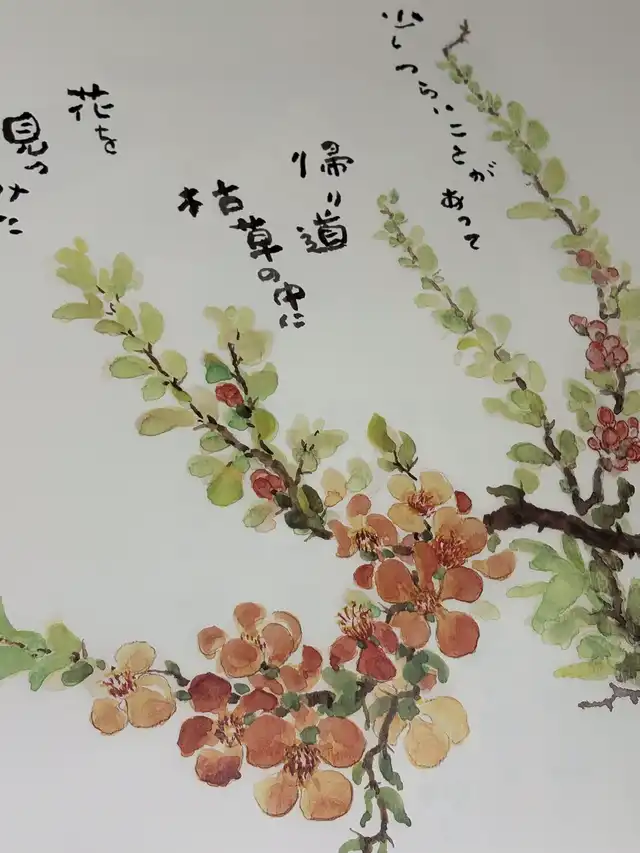 少しつらいことが
あって
帰り道
枯草の中に
花を
見つけた